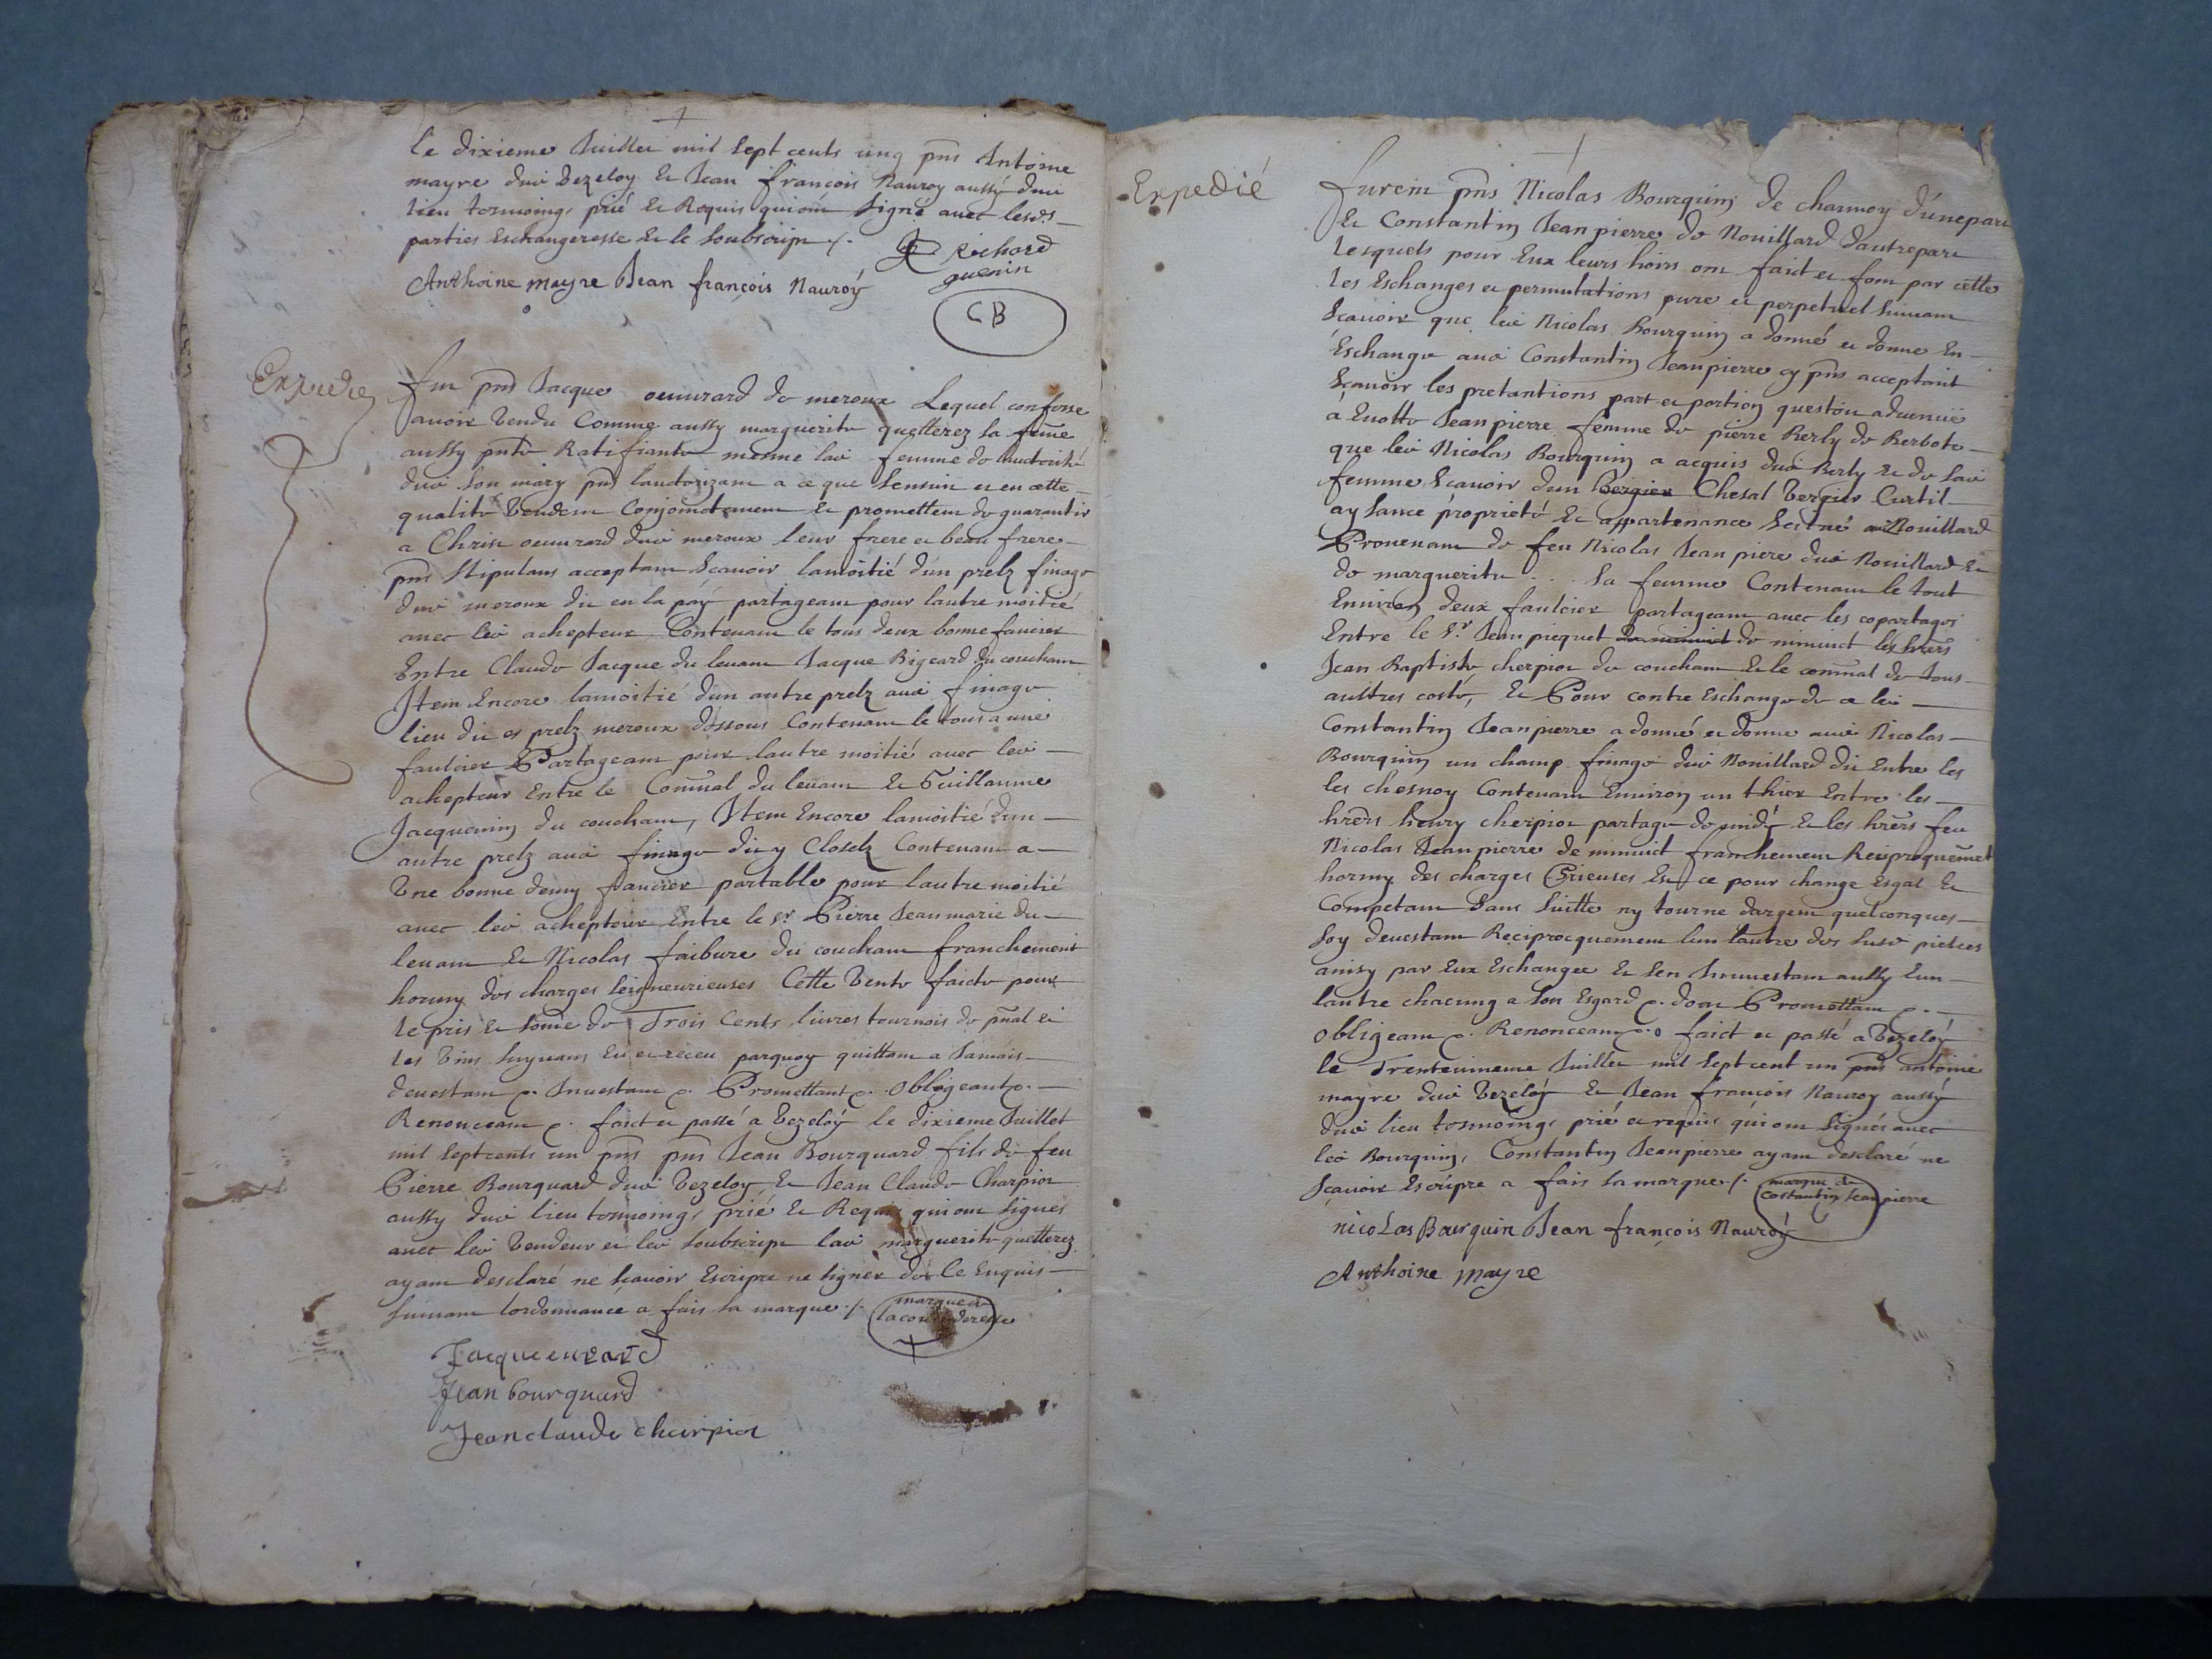 le dixieme Juillet mil Sept cents ung pns Antoine
mayre dud Vezeloy Et Jean francois Nauroy aussy dud
lieu tesmoing, prié Et Requis qui ont Signé avec lesds
parties Eschangeresse Et le Soubscript /.
Richard
guerin
Anthoine mayre Jean françois Nauroÿ
CB
Expedié
fut pnt Jacque oeuvrard de meroux Lequel confesse
avoir Vendu Comme aussy marguerite quetterez Sa feme
aussy pnte Ratifiante mesme lad femme de Lauctorité
dud Son mary pnt lauctorizant a ce que Sensuit et en cette
qualité Vendent Conjoinctement Et promettent de guarantir
a Christ oeuvrard dud meroux leur frere et beau frere
pnt Stipulant acceptant Sçavoir lamoitié d'un prelz finage
dud meroux dit en la paÿ partageant pour lautre moitié
avec led achepteur Contenant le tous deux bonne faucier
Entre Claude Jacque du levant Jacque Bigeard du couchant
Item Encore lamoitié d'un autre prelz aud finage
lieu dit es prelz meroux dessous Contenant le tous a une
faulcier Partageant pour lautre moitié avec led
achepteur Entre le Comunal du levant Et Guillaume
Jacquemin du couchant, Item Encore lamoitié d'un
autre prelz aud finage dit y Closelz Contenant a
Une bonne demy faucier partable pour lautre moitié
avec led achepteur Entre le Sr Pierre Jean marie du
levant Et Nicolas faibure du couchant franchement
hormy des charges Seigneurieuses Cette Vente faicte pour
le pris Et Some de Trois Cents livres tournois de pnal et
les Vins Suyvans Eu et receu parquoy quittant a Jamais
devestant p. Investant p. Promettant p. obligeant p.
Renonceant p. faict et passé a Vezeloÿ le dixieme Juillet
mil Septcents un pns pns Jean Bourquard fils de feu
Pierre Bourquard dud Vezeloy Et Jean Claude Charpiot
aussy dud lieu tesmoing, prié Et Requis qui ont Signés
avec led Vendeur et led Soubscript lad marguerite quetterez
ayant desclaré ne Sçavoir Escripre ne Signer de Ce Enquis
Suivant lordonnance a fais Sa marque /.
marque de
la covenderesse
Jacque euvrard
Jean bourquard
Jean claude charpiot
Expedié
furent pns Nicolas Bourquin de charmoy d'unepart
Et Constantin Jean pierre de Novillard dautrepart
Lesquels pour Eux leurs hoirs ont faict et font par cette
les Eschanges et permutations pure et perpetuel Suivant
Sçavoir que led Nicolas Bourquin a donné et donne En
Eschange aud Constantin Jeanpierre cy pnt acceptant
Sçavoir les pretantions part et portion question advenuë
a Enotte Jeanpierre femme de pierre Berly de Berbote
que led Nicolas Bourquin a acquis dud Berly Et de Sad
femme Scavoir d'un Vergier Chesal Vergier Curtil
aysance proprieté Et appartenance Scitué au Novillard
Provenant de feu Nicolas Jean piere dud Novillard Et
de marguerite ... Sa femme Contenant le tout
Environ deux faulcier partageant avec les copartages
Entre le Sr Jean piequet de minuict les hrers
Jean Baptiste cherpiot du couchant Et le comunal de tous
aultres costé, Et Pour contre Eschange de ce led
Constantin Jeanpierre a donné et donne aud Nicolas
Bourquin un champ finage dud Novillard dit Entre les
les chesnoy Contenant Environ un thier Entre les
hrers henry cherpiot partage de midÿ Et les hrers feu
Nicolas Jeanpierre de minuict franchement Reciproquemet
hormy des charges Grieuses Et ce pour change Esgal Et
Competant Sans Suitte ny tourne dargent quelconques
Soy devestant Reciprocquement lun lautre des Susd pieces
ainsy par Eux Eschangee Et Sen Innvestant aussy lun
lautre chacung a Son Esgard p. dont Promettant p.
obligeant p. Renonceant p. faict et passé a Vezeloÿ
le Trenteunieme Juillet mil Sept cent un pns antoine
mayre dud Vezeloÿ Et Jean francois Nauroy aussÿ
dud lieu tesmoing, prié et requis qui ont Signés avec
led Bourquin, Constantin Jeanpierre ayant desclaré ne
Sçavoir Escripre a fais Sa marque /.
marque de
Costantin Jean pierre
nicoLas Bourquin Jean françois Nauroÿ
Anthoine mayre